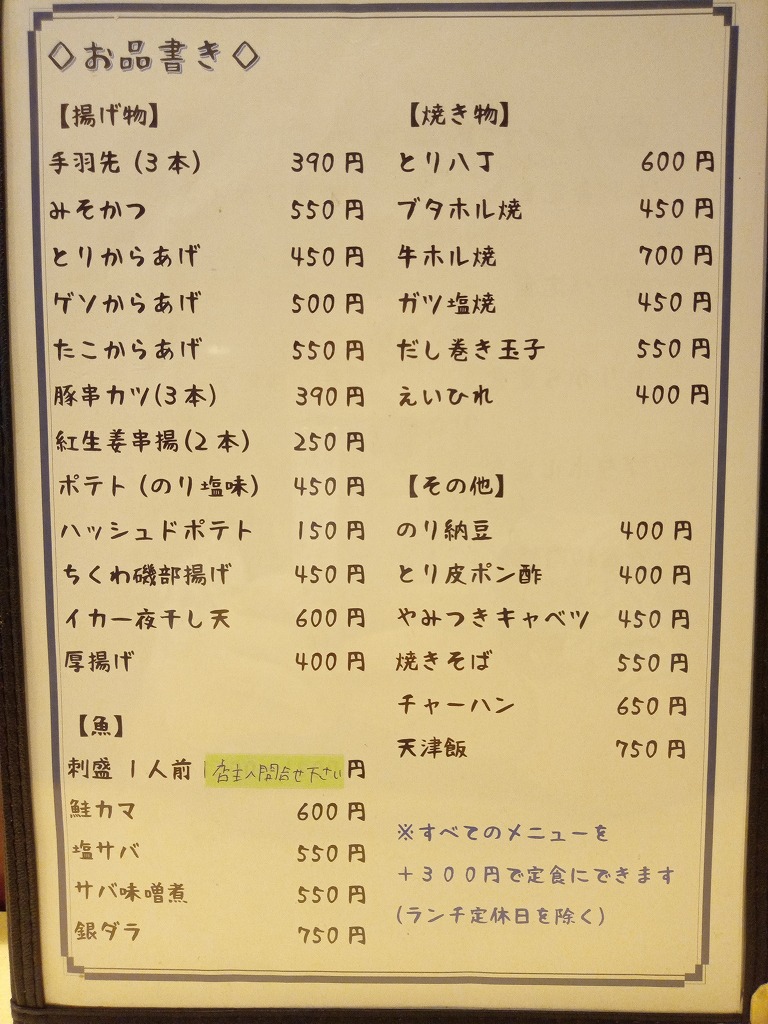 ◇お品書き◇
【揚げ物】
手羽先(3本) 390円
みそかつ 550円
とりからあげ 450円
ゲソからあげ 500円
たこからあげ 550円
豚串カツ(3本) 390円
紅生姜串揚(2本) 250円
ポテト(のり塩味) 450円
ハッシュドポテト 150円
ちくわ磯部揚げ 450円
イカ一夜干し天 600円
厚揚げ 400円
【魚】
刺盛 1人前 店主へ問合せ下さい 円
鮭カマ 600円
塩サバ 550円
サバ味噌煮 550円
銀ダラ 750円
【焼き物】
とり八丁 600円
ブタホル焼 450円
牛ホル焼 700円
ガツ塩焼 450円
だし巻き玉子 550円
えいひれ 400円
【その他】
のり納豆 400円
とり皮ポン酢 400円
やみつきキャベツ 450円
焼きそば 550円
チャーハン 650円
天津飯 750円
※すべてのメニューを
+300円で定食にできます
(ランチ定休日を除く)